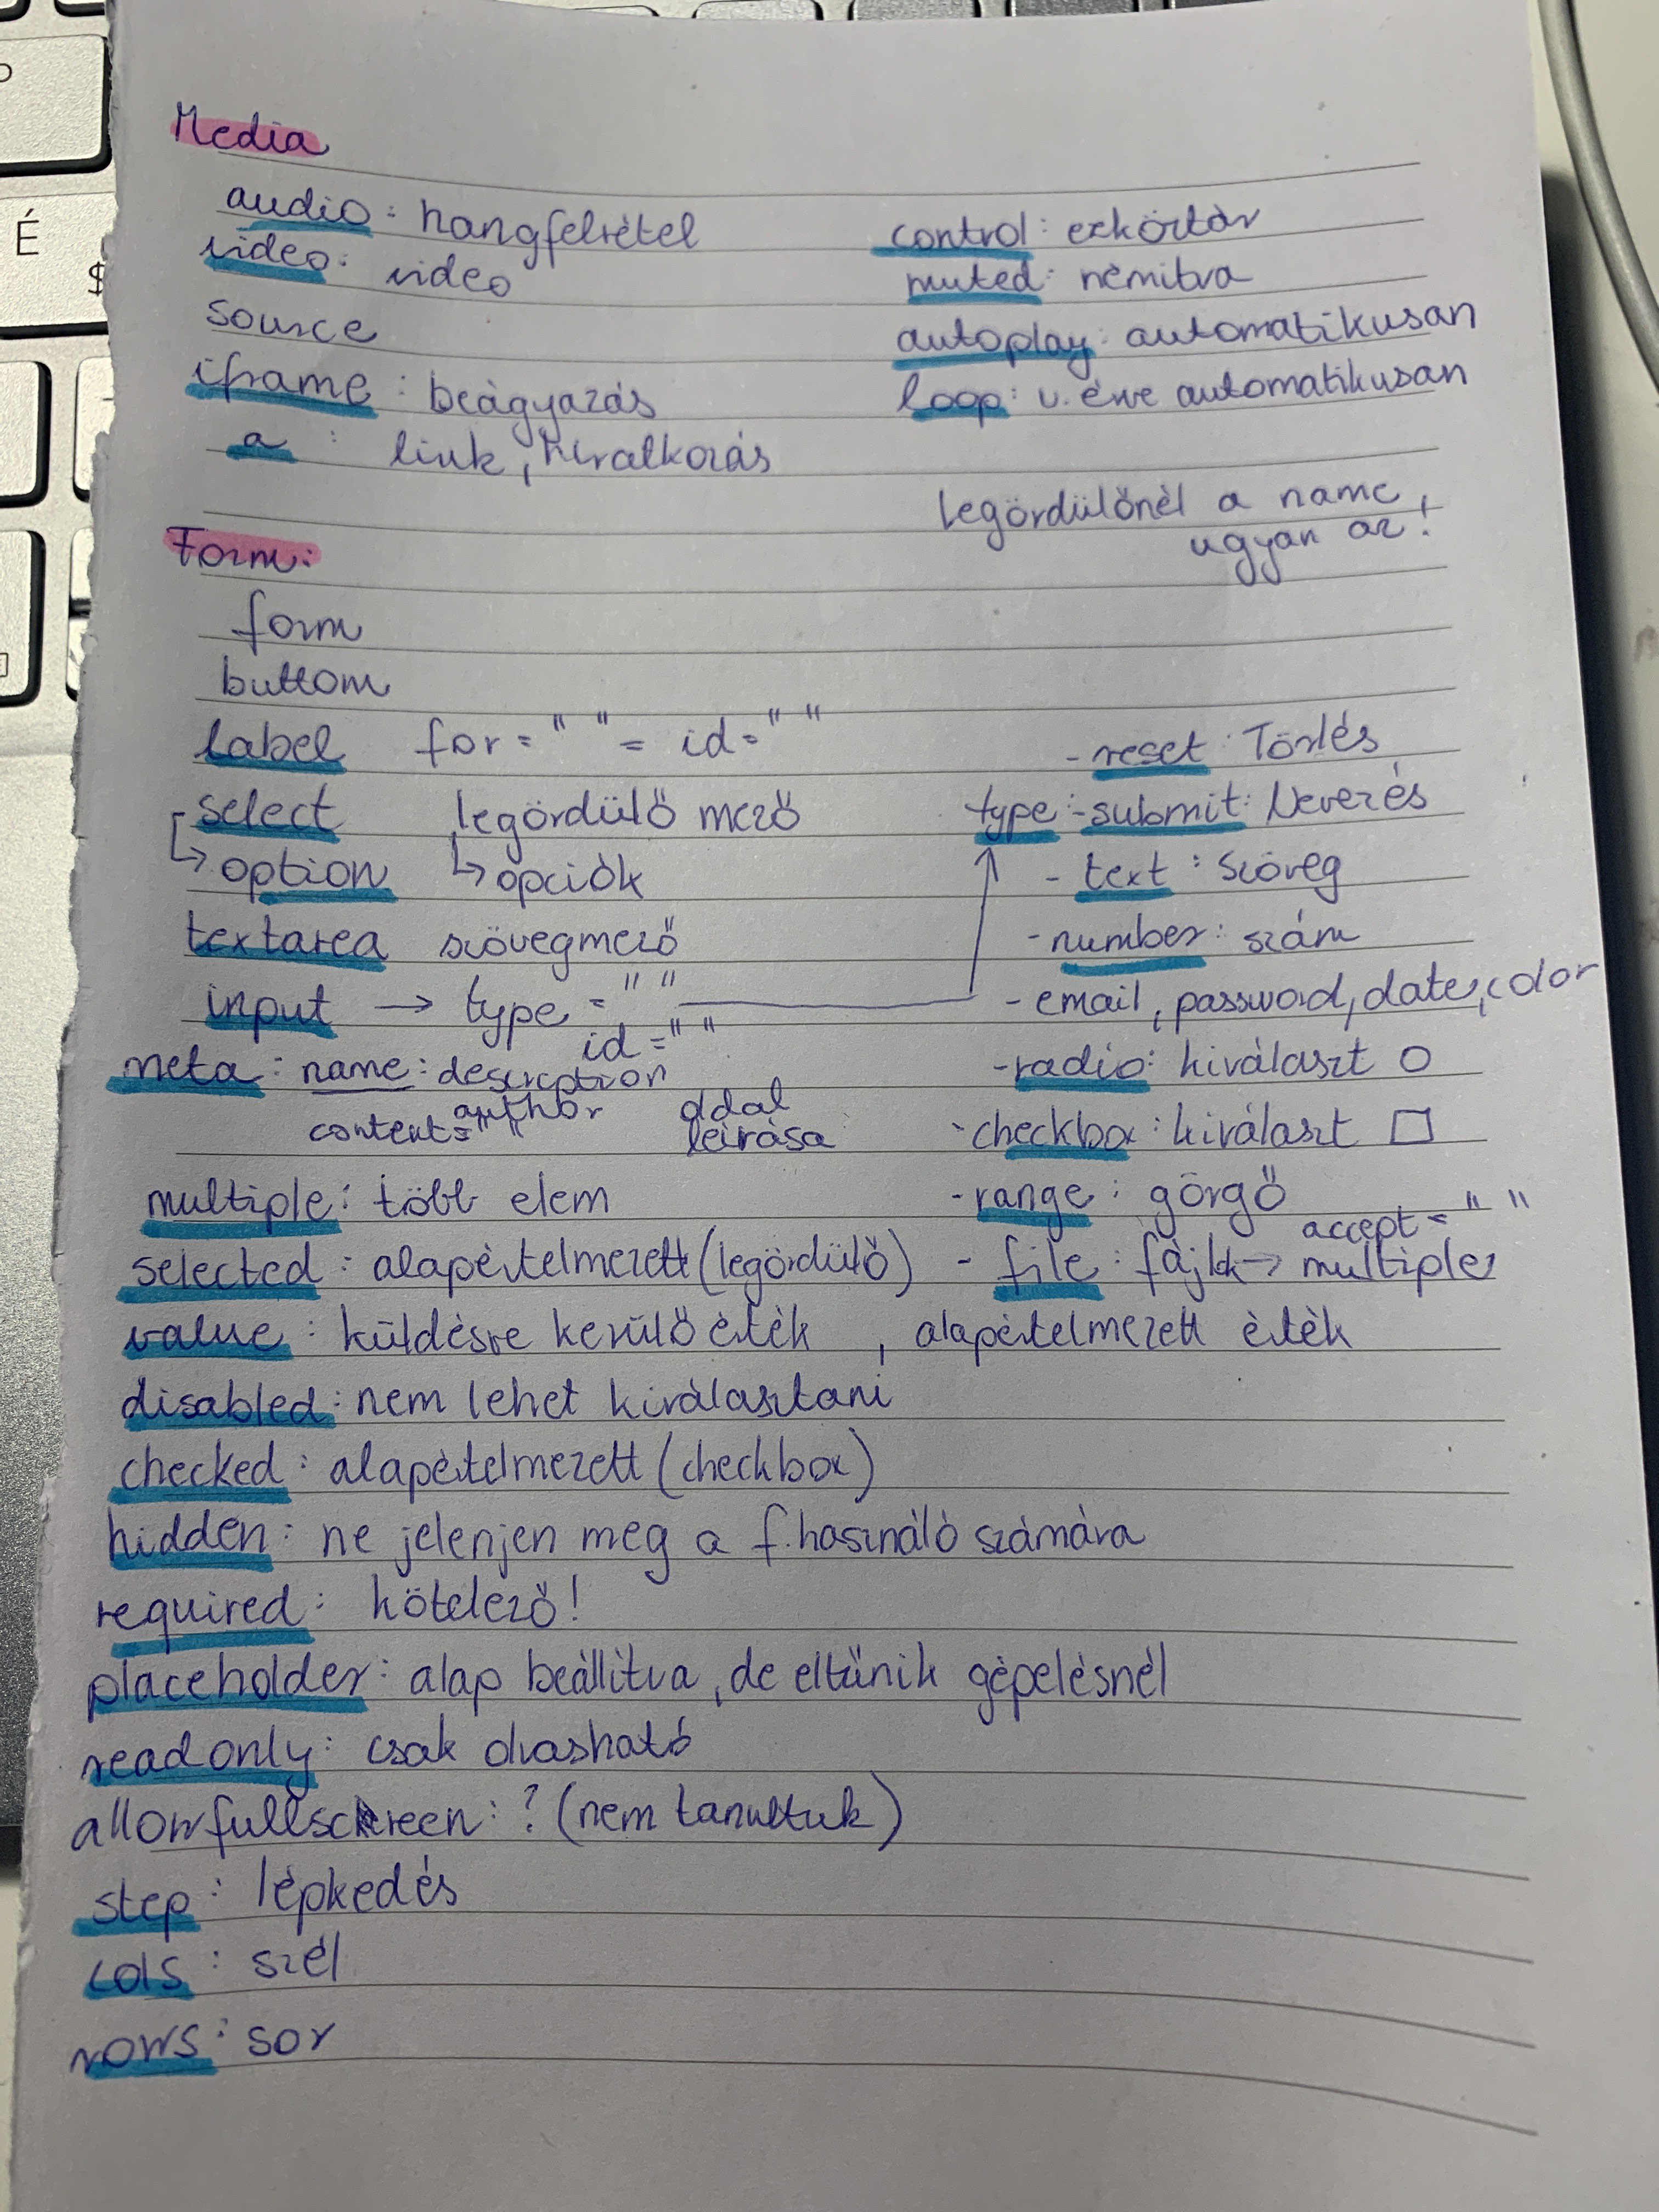 Media
audio: hangfelvétel
video: video
source
iframe: beágyazás
a: link, hivatkozás
control: eszköztár
muted: némitva
autoplay: automatikusan
loop: v. érve automatikusan
legördülőnél a name
ugyan az!
Form:
form
buttom
label for=" " = id=" "
select legördülő mező
↳ option ↳ opciók
textarea szövegmező
input → type=" "
id=" "
- reset: Törlés
type: - submit: Nevezés
- text: szöveg
- number: szám
- email, password, date, color
- radio: kiválaszt ○
- checkbox: kiválaszt □
- range: görgő
accept=" "
- file: fájlok → multiple
meta: name: description
author
content=" "
oldal
leírása
multiple: több elem
selected: alapértelmezett (legördülő)
value: küldésre kerülő érték, alapértelmezett érték
disabled: nem lehet kiválasztani
checked: alapértelmezett (checkbox)
hidden: ne jelenjen meg a f.használó számára
required: kötelező!
placeholder: alap beállítva, de eltűnik gépelésnél
readonly: csak olvasható
allowfullscreen: ? (nem tanultuk)
step: lépkedés
cols: szél
rows: sor
É
$